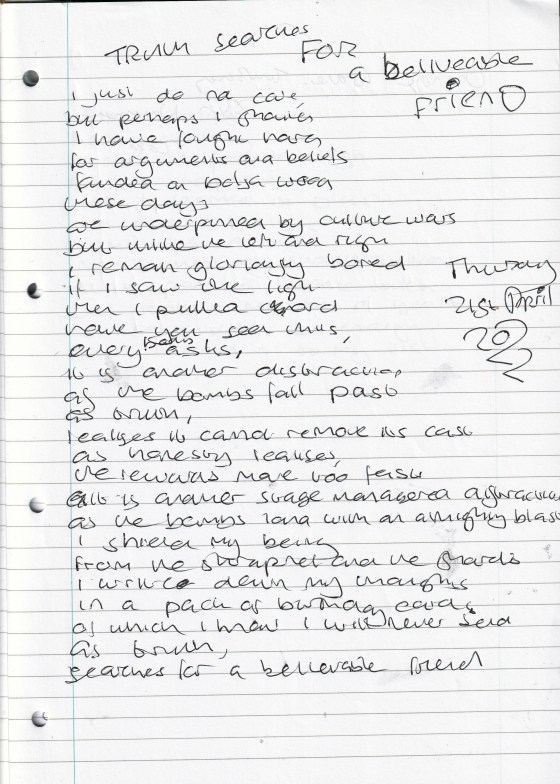 TRUTH searches
FOR
a beliveable
friend
I just do na care,
but perhaps I should
I have fought hard
for arguments and beliefs
funded on balsa wood
these days
are underpinned by culture wars
but unlike the left and right
I remain gloriously bored
if I saw the light
then I pulled a chord
have you seen this,
every asks,
it is another distraction,
as the bombs fall fast
as truth,
realises it cannot remove its cast
as honesty realises,
the rewards move too fast
it is another stage managed distraction
as the bombs land with an almighty blast
I shield my being
from the shrapnel and the shards
I write down my thoughts
in a pack of birthday cards
of which I know I will never send
as truth,
searches for a believable friend
Thursday
21st April
2022